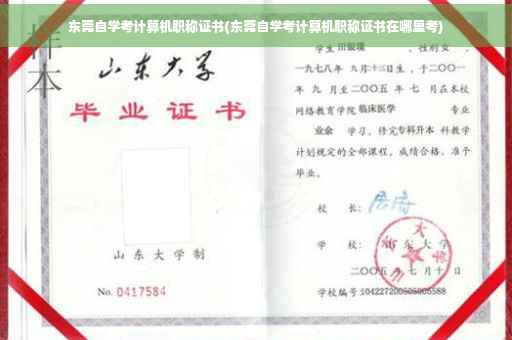 东莞自学考计算机职称证书(东莞自学考计算机职称证书在哪里考)
样本
山东大学
毕业证书
山东大学制
No. 0417584
学生
性别女，
一九七八年 九月十三日生，于二〇〇一
年 九 月至二〇〇五 年 七 月在本校
网络教育学院 临床医学 专业
业余 学习，修完专科升本 科教学
计划规定的全部课程，成绩合格，准予
毕业。
校 长：
学 校：山东大学
二〇〇五 年 七 月 十 日
学校编号: